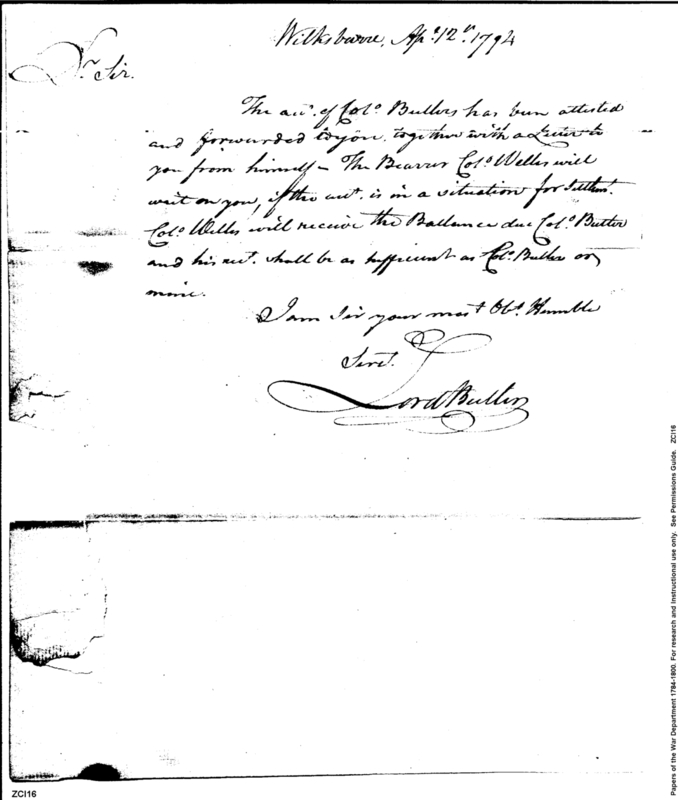 Wilksbarre, Apl. 12th. 1794
Dr. Sir.
The act. of Colo. Butlers has been attested
and forwarded to you together with a Letter to
you from himself – The Bearer Colo. Welles will
wait on you, if the act. is in a situation for Settlmt.
Colo. Welles will receive the Ballance due Colo. Butler
and his rect. shall be as sufficient as Colo. Butler or
mine.
I am Sir your most Obt. Humble
Servt.
Lord Butler
ZCI16
Papers of the War Department 1784-1800. For research and instructional use only. See Permissions Guide. ZCI16